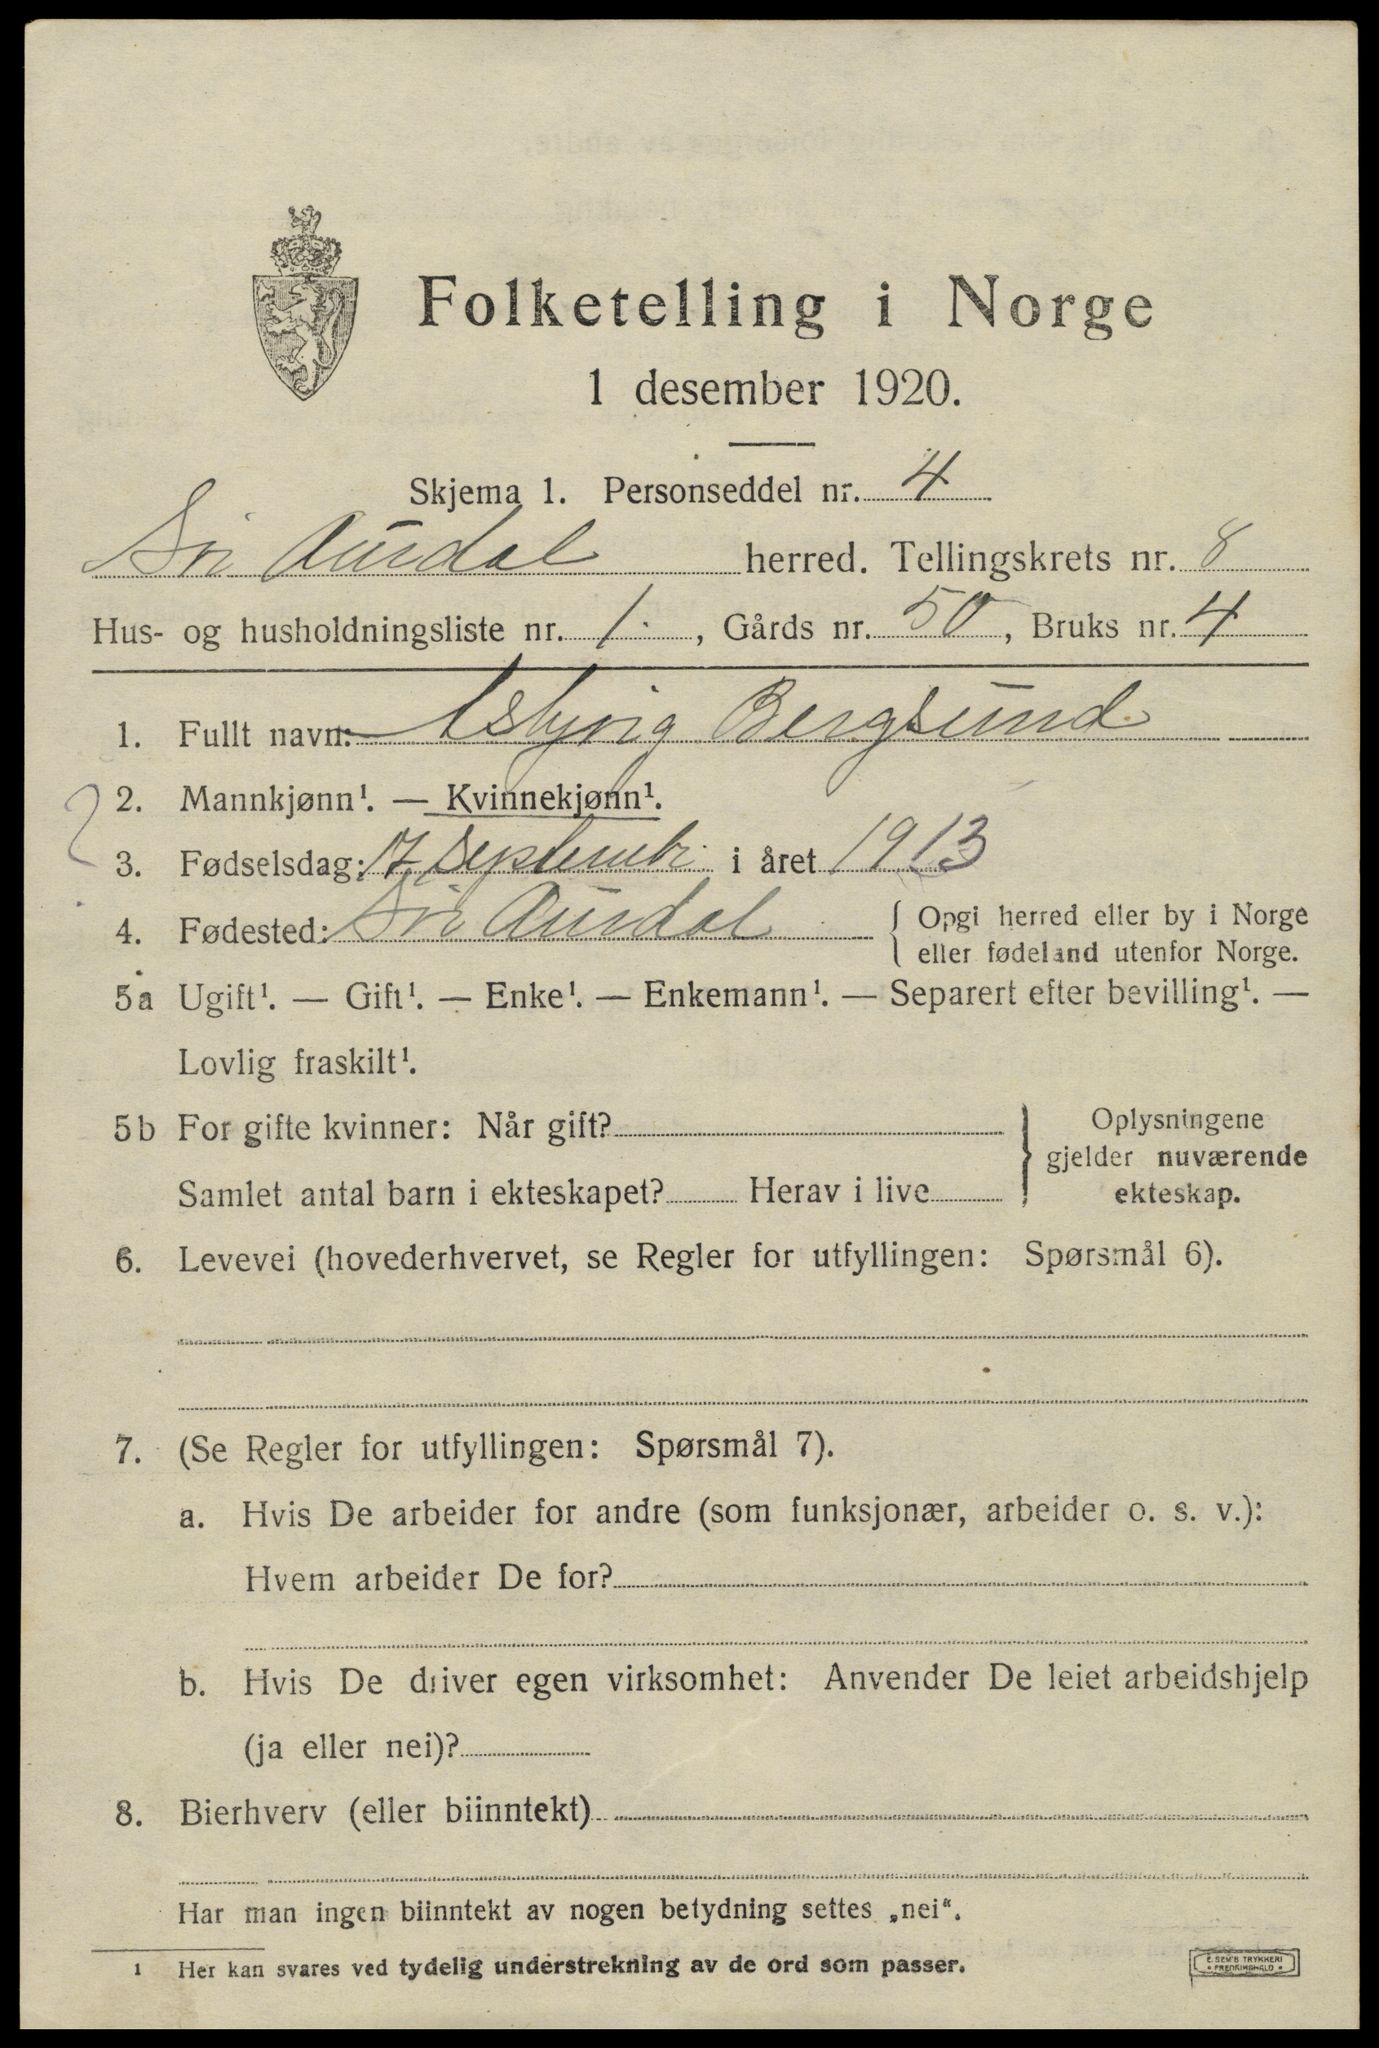 Folketelling i Norge
1 desember 1920.
Skjema 1. Personseddel nr. 4
Sør Aurdal herred. Tellingskrets nr. 8
Hus- og husholdningsliste nr. 1, Gårds nr. 50, Bruks nr. 4
1. Fullt navn: Asbjørg Bergsund
2. Mannkjønn¹. — Kvinnekjønn¹.
3. Fødselsdag: 17 Septembr. i året 1913
4. Fødested: Sør Aurdal { Opgi herred eller by i Norge
eller fødeland utenfor Norge.
5a Ugift¹. — Gift¹. — Enke¹. — Enkemann¹. — Separert efter bevilling¹. —
Lovlig fraskilt¹.
5b For gifte kvinner: Når gift?
Samlet antal barn i ekteskapet? Herav i live
} Oplysningene
gjelder nuværende
ekteskap.
6. Levevei (hovederhvervet, se Regler for utfyllingen: Spørsmål 6).
7. (Se Regler for utfyllingen: Spørsmål 7).
a. Hvis De arbeider for andre (som funksjonær, arbeider o. s. v.):
Hvem arbeider De for?
b. Hvis De driver egen virksomhet: Anvender De leiet arbeidshjelp
(ja eller nei)?
8. Bierhverv (eller biinntekt)
Har man ingen biinntekt av nogen betydning settes „nei“.
¹ Her kan svares ved tydelig understrekning av de ord som passer.
E. SEM'S TRYKKERI
FREDRIKSHALD